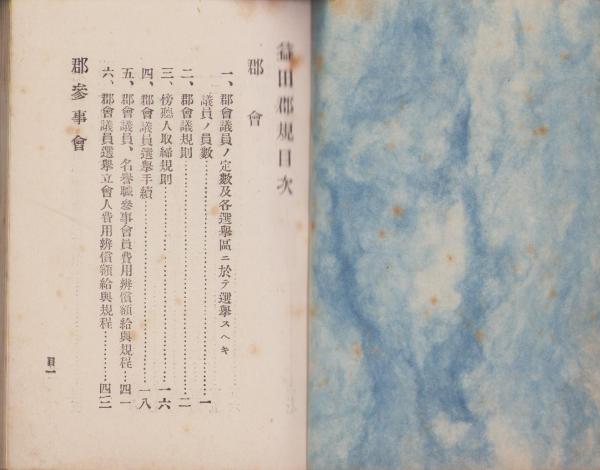 益田郡規目次
郡會
一、郡會議員ノ定數及各選擧區ニ於テ選擧スヘキ
議員ノ員數……………………一
二、郡會議規則……………………二
三、傍聽人取締規則……………………一六
四、郡會議員選擧手續……………………一八
五、郡會議員、名譽職參事會員費用辨償額給與規程……四一
六、郡會議員選擧立會人費用辨償額給與規程……四三
郡參事會
目一